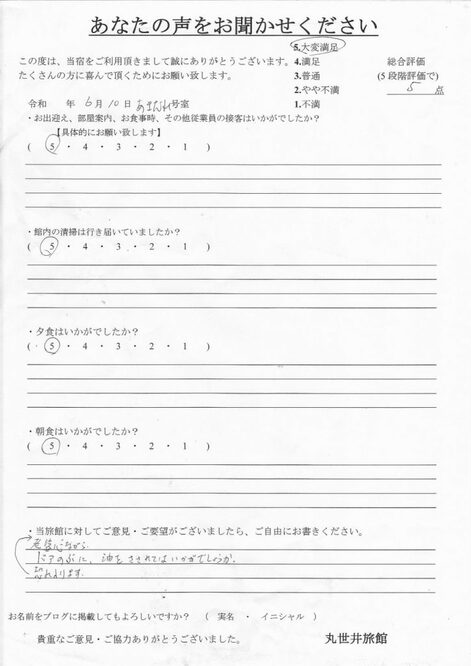 あなたの声をお聞かせください
5.大変満足
この度は、当宿をご利用頂きまして誠にありがとうございます。 4.満足 総合評価
たくさんの方に喜んで頂くためにお願い致します。 3.普通 (5段階評価で)
2.やや不満 5 点
令和 年 6月 10日 号室 1.不満
・お出迎え、部屋案内、お食事時、その他従業員の接客はいかがでしたか?
【具体的にお願い致します】
( 5 ・ 4 ・ 3 ・ 2 ・ 1 )
・館内の清掃は行き届いていましたか?
( 5 ・ 4 ・ 3 ・ 2 ・ 1 )
・夕食はいかがでしたか?
( 5 ・ 4 ・ 3 ・ 2 ・ 1 )
・朝食はいかがでしたか?
( 5 ・ 4 ・ 3 ・ 2 ・ 1 )
・当旅館に対してご意見・ご要望がございましたら、ご自由にお書きください。
老婆心ながら
ドアのぶに、油をさされてはいかがでしょうか.
恐れ入ります.
お名前をブログに掲載してもよろしいですか? ( 実名 ・ イニシャル )
貴重なご意見・ご協力ありがとうございました。 丸世井旅館